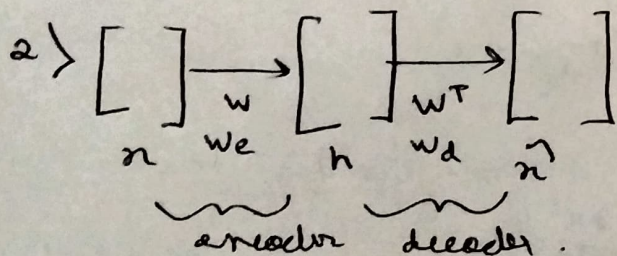 2> [ ] → [ ] → [ ]
W W^T
We Wd
x h x̂
encoder decoder.